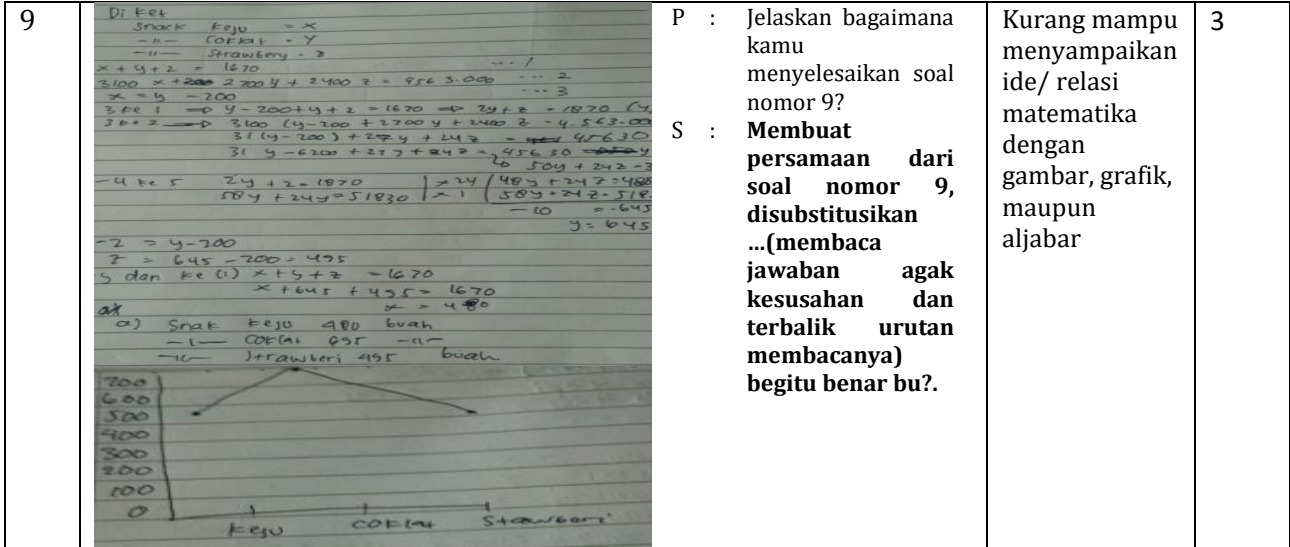 9
Diket
Snack Keju = x
-"- Coklat - Y
-"- Strawbery - z
x + y + z = 1670 ... 1
3100 x + 2700 y + 2400 z = 956 3.000 ... 2
x = y - 200 ... 3
3 ke 1 => y - 200 + y + z = 1670 => 2y + z = 1870
3 ke 2 => 3100 (y - 200 + 2700 y + 2400 z = 4.563.00
31 (y - 200) + 27 y + 24 z = 45630
31 y - 6200 + 27 y + 24 z = 456 30
50y + 24z =
- 4 ke 5 2y + z = 1870 | x 24 | 48y + 24 z = 448
58 y + 24 y = 51830 | x 1 | 58y + 24 z = 518
- 10 = - 645
y = 645
- z = y - 200
z = 645 - 200 = 495
5 dan ke (1) x + y + z = 1670
x + 645 + 495 = 1670
x = 480
a) Snak keju 480 buah
Coklat 695 -"-
-"- Strawberi 495 buah
700
600
500
400
300
200
100
0
Keju Coklat Strawberi
P : Jelaskan bagaimana
kamu
menyelesaikan soal
nomor 9?
S : Membuat
persamaan dari
soal nomor 9,
disubstitusikan
...(membaca
jawaban agak
kesusahan dan
terbalik urutan
membacanya)
begitu benar bu?.
Kurang mampu
menyampaikan
ide/ relasi
matematika
dengan
gambar, grafik,
maupun
aljabar
3